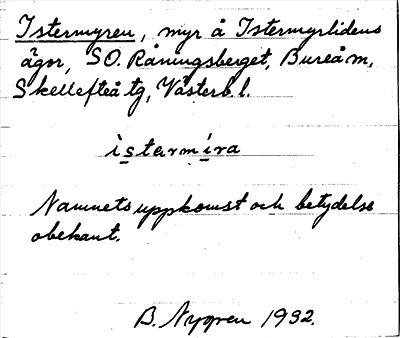 Istermyren, myr å Istermyrlidens
ägor, SO. Råningsberget, Bureå m,
Skellefteå tg, Västerb. l.
istərmíra
Namnets uppkomst och betydelse
obekant.
B. Nygren 1932.